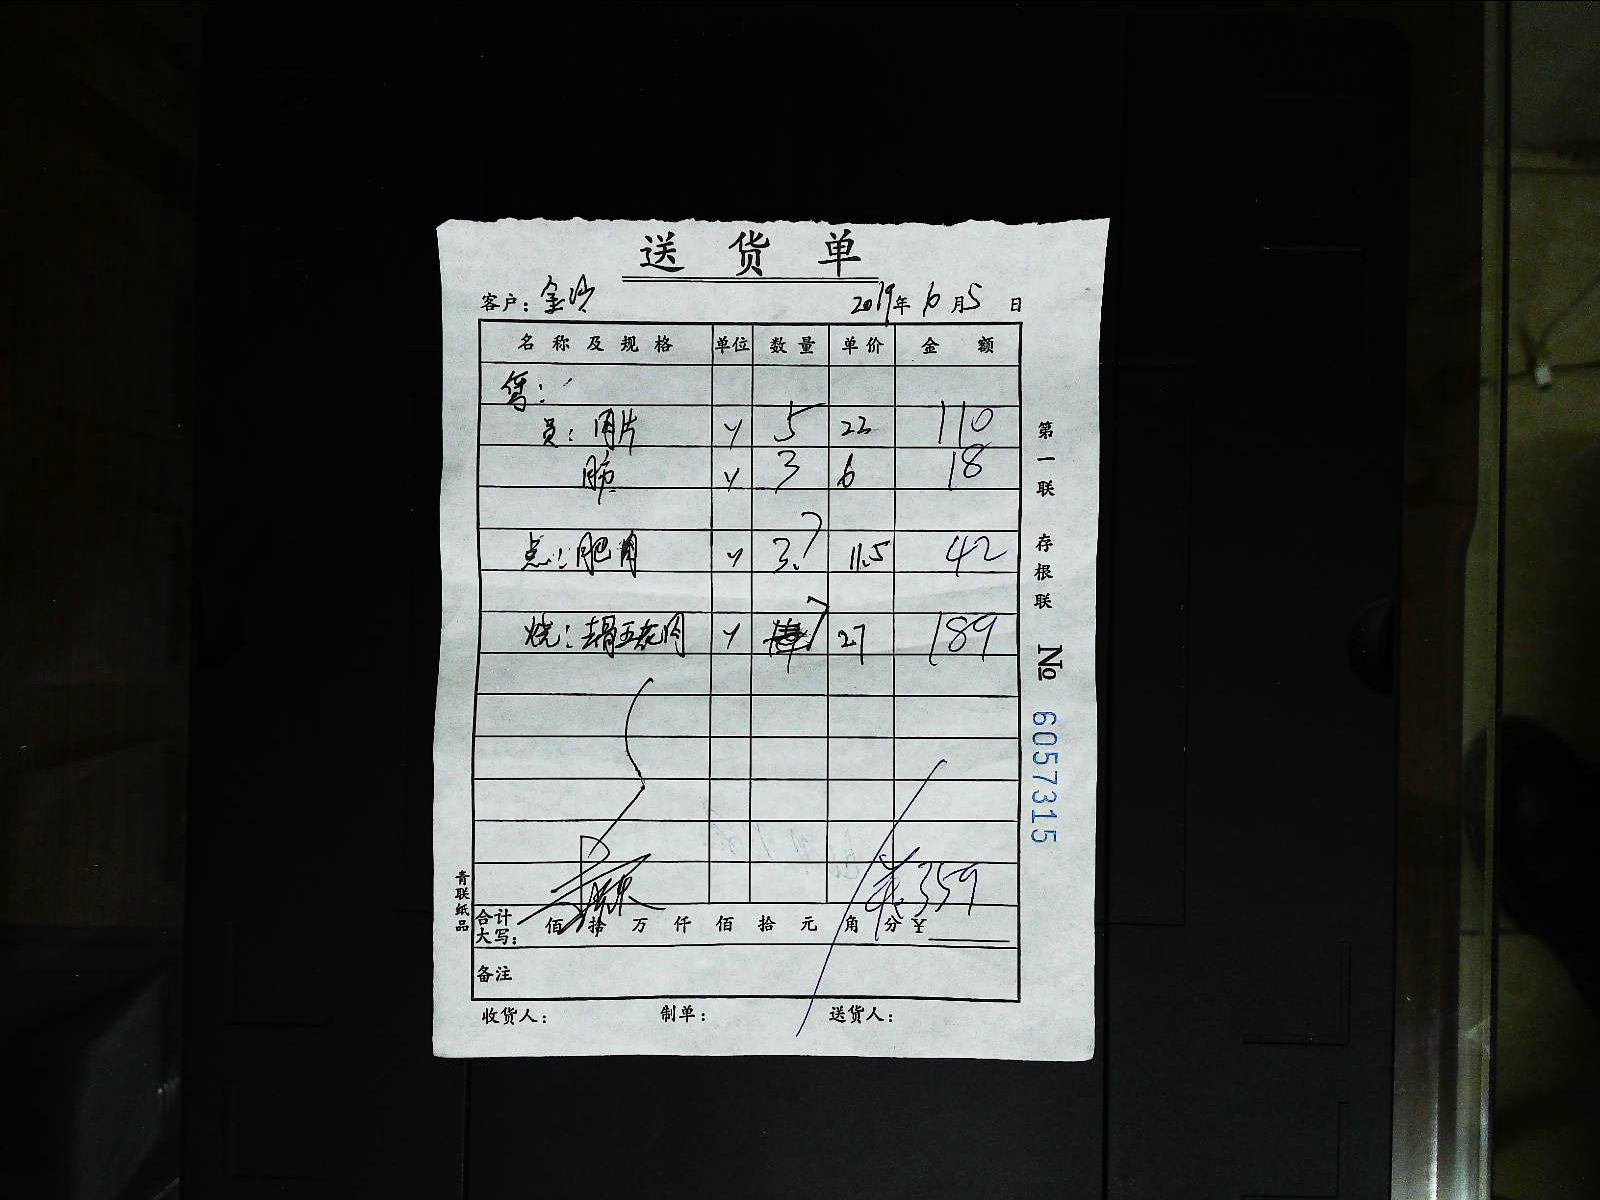 送货单
客户：金沙 2019年6月5日
名称及规格 单位 数量 单价 金额
员：肉片 5 22 110
3 6 18
点：肥肉 3.7 11.5 42
烧：去骨五花肉 7 27 189
359
合计大写： 佰 拾 万 仟 佰 拾 元 角 分 ¥
备注
收货人： 制单： 送货人：
第一联 存根联
No 6057315
青联纸品